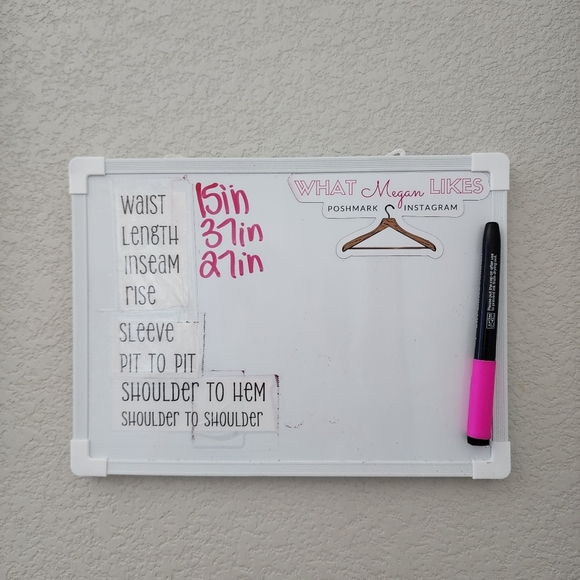 WAIST 15in
LENGTH 37in
INSEAM 27in
RISE
SLEEVE
PIT TO PIT
SHOULDER TO HEM
SHOULDER TO SHOULDER
WHAT Megan LIKES
POSHMARK INSTAGRAM